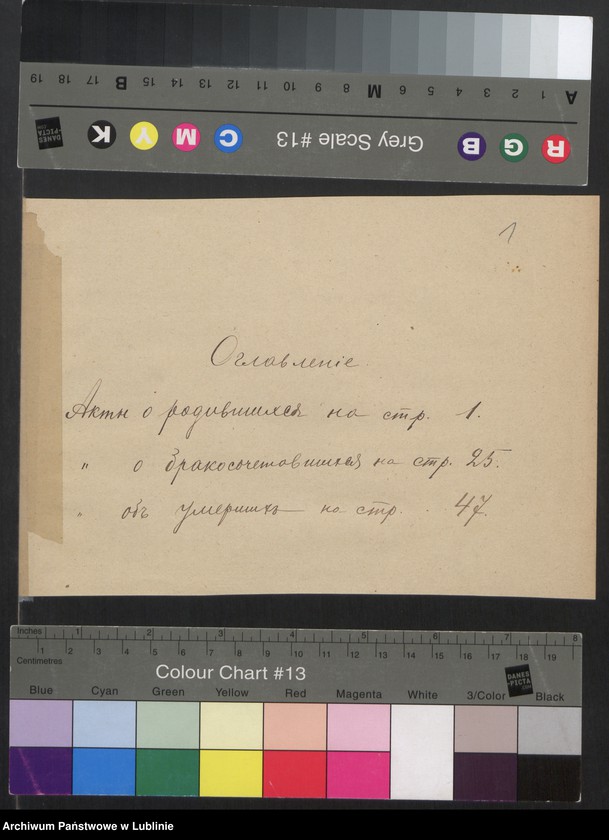 A 1 2 3 4 5 6 M 8 9 10 11 12 13 14 15 B 17 18 19
R G B Grey Scale #13 C M Y K DANES-PICTA.COM
1
Оглавленіе.
Акты о родившихся на стр. 1.
" о бракосочетавшихся на стр. 25.
" объ умершихъ на стр. 47.
Inches 1 2 3 4 5 6 7 8
Centimetres 1 2 3 4 5 6 7 8 9 10 11 12 13 14 15 16 17 18 19
Colour Chart #13 DANES-PICTA.COM
Blue Cyan Green Yellow Red Magenta White 3/Color Black
Archiwum Państwowe w Lublinie